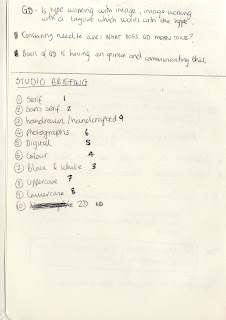 GD - Is type working with image, image working
with a layout which works with the type.
Constantly need to ask: WHAT DOES GD MEAN TO ME?
Basis of GD is having an opinion and communicating this.
STUDIO BRIEFING
① Serif 1
② Sans serif 2
③ handrawn / handcrafted 9
④ Photographs 6
⑤ Digital 5
⑥ Colour 4
⑦ Black & white 3
⑧ Uppercase 7
⑨ Lowercase 8
⑩ 2D 10